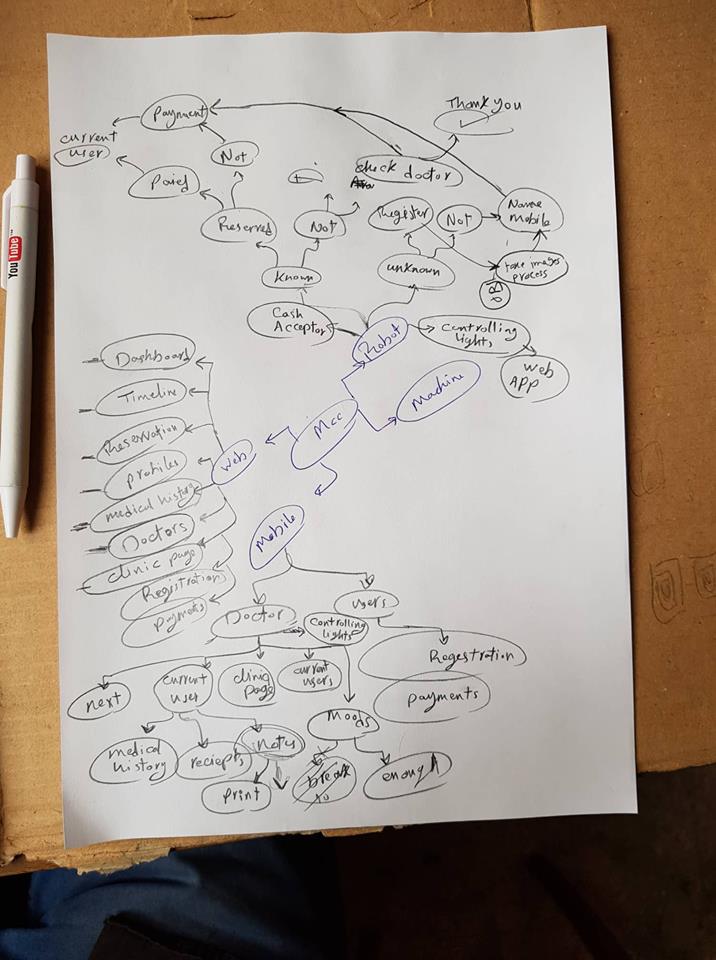 Thank you
Payment
current
user
Not
check doctor
Paied
Reserved
Not
Register
Not
Name
mobile
known
unknown
take images
process
Cash
Acceptor
Robot
Controlling
lights
web
APP
Dashboard
Timeline
Reservation
profiles
medical history
Doctors
clinic page
Registration
payments
web
Mcc
Machine
Mobile
Doctor
users
Controlling
lights
Regestration
payments
next
current
user
clinic
page
current
users
Moods
medical
history
reciepts
notes
print
break
enough
You Tube